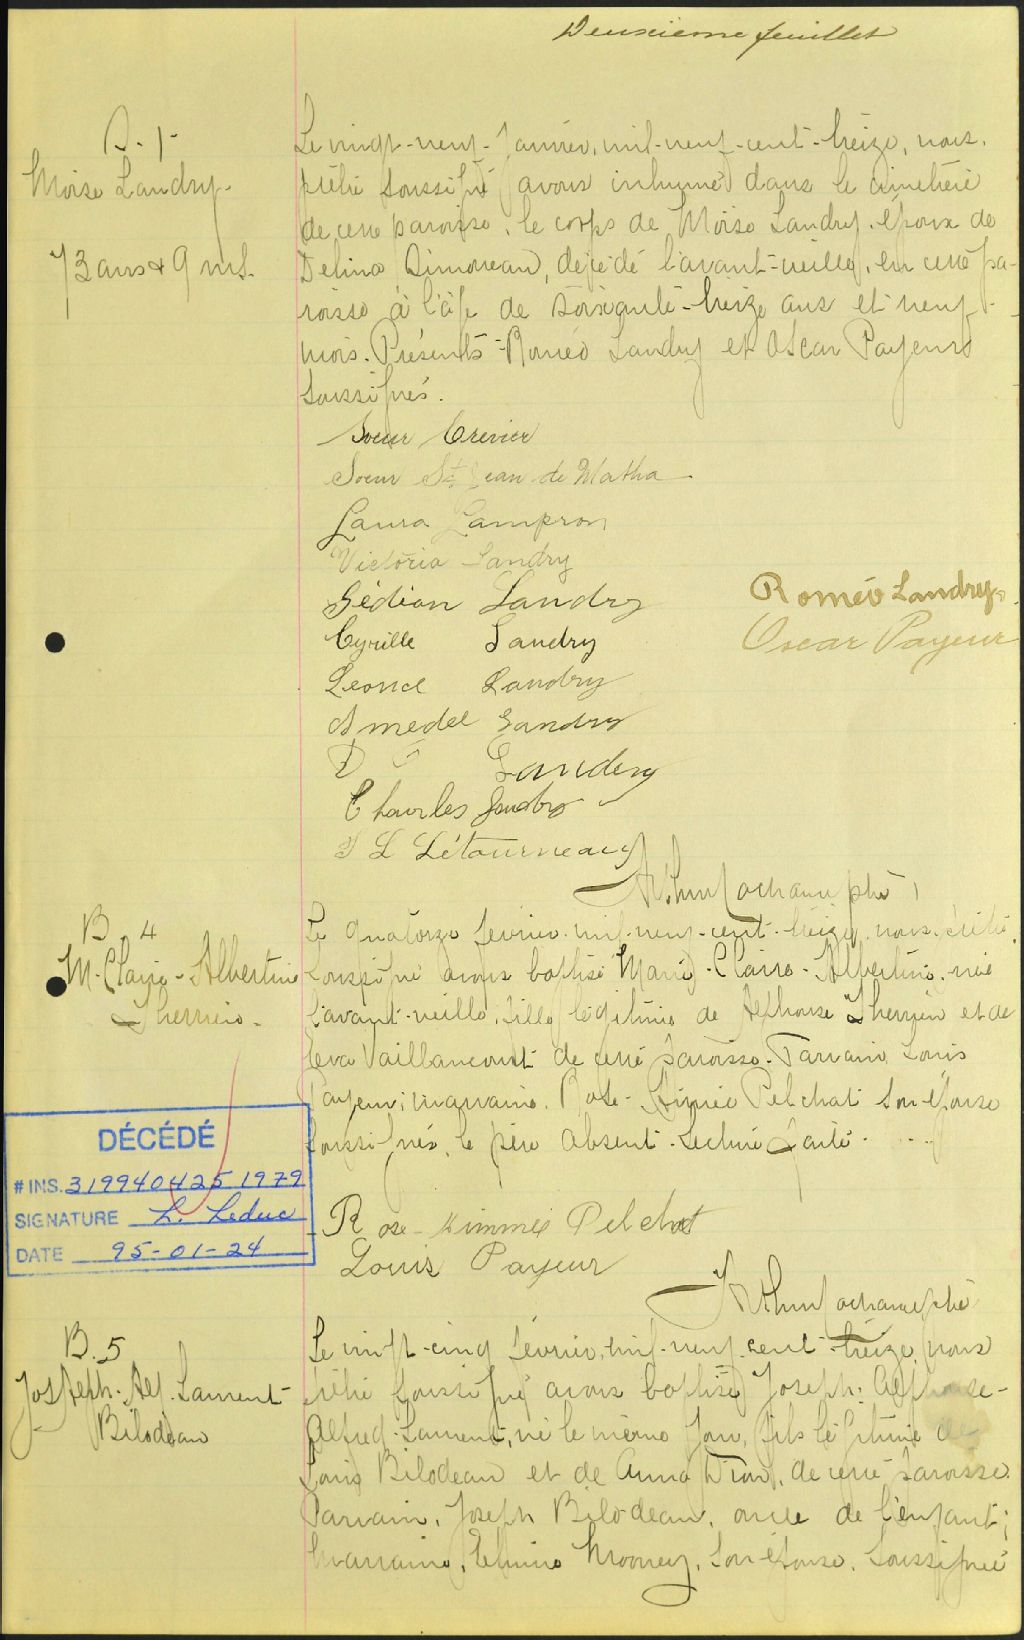 Deuxième feuillet
S. 1
Moïse Landry
73 ans & 9 ms.
Le vingt-neuf Janvier, mil-neuf-cent-treize, nous,
prêtre soussigné avons inhumé dans le cimetière
de cette paroisse, le corps de Moïse Landry, époux de
Delina Simoneau, décédé l'avant-veille, en cette pa-
roisse à l'âge de soixante-treize ans et neuf
mois. Présents Roméo Landry et Oscar Payeur
soussignés.
Soeur Crevier
Soeur St Jean de Matha
Laura Lampron
Victoria Landry
Gédion Landry
Roméo Landry
Cyrille Landry
Oscar Payeur
Leonce Landry
Amedel Landry
Landry
Charles Landry
L Létourneau
B. 4
M-Claire-Albertine
Therrien
Le quatorze février mil-neuf-cent-treize, nous, prêtre
soussigné avons baptisé Marie-Claire-Albertine, née
l'avant-veille, fille légitime de Alphonse Therrien et de
Eva Vaillancourt de cette paroisse. Parrain, Louis
Payeur; marraine, Rose-Aimée Pelchat son épouse
soussignés, le père absent. Lecture faite.
DÉCÉDÉ
# INS. 319940425 1979
SIGNATURE L. Leduc
DATE 95-01-24
Rose-Aimmée Pelchat
Louis Payeur
B. 5
Joseph-Alf. Laurent
Bilodeau
Le vingt-cinq février, mil-neuf-cent-treize, nous
prêtre soussigné avons baptisé Joseph-Alphonse-
Alfred-Laurent, né le même jour, fils légitime de
Louis Bilodeau et de Anna Dion, de cette paroisse.
Parrain, Joseph Bilodeau, oncle de l'enfant;
marraine, Mooney, son épouse, soussignée